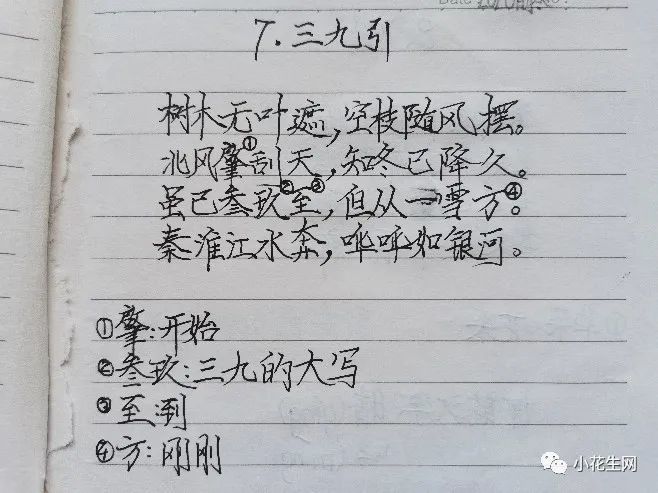 7.三九引
树木无叶遮,空枝随风摆。
北风肇①刮天,知冬已降久。
虽已叁玖②至③,但从一雪方④。
秦淮江水奔,哗哗如银河。
①肇:开始
②叁玖:三九的大写
③至:到
④方:刚刚
小花生网